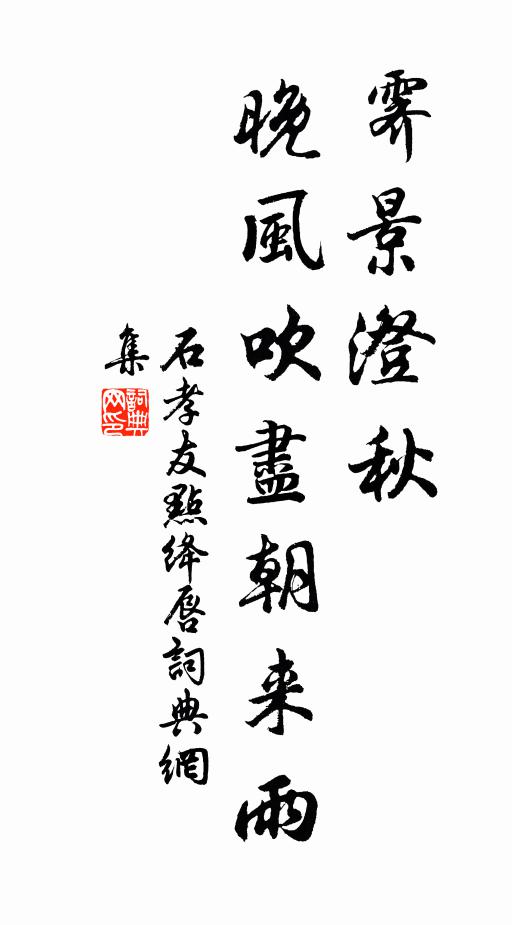 霽景澄秋
晚風吹盡朝来雨
石孝友點絳唇詞典網
集
詞典
网印